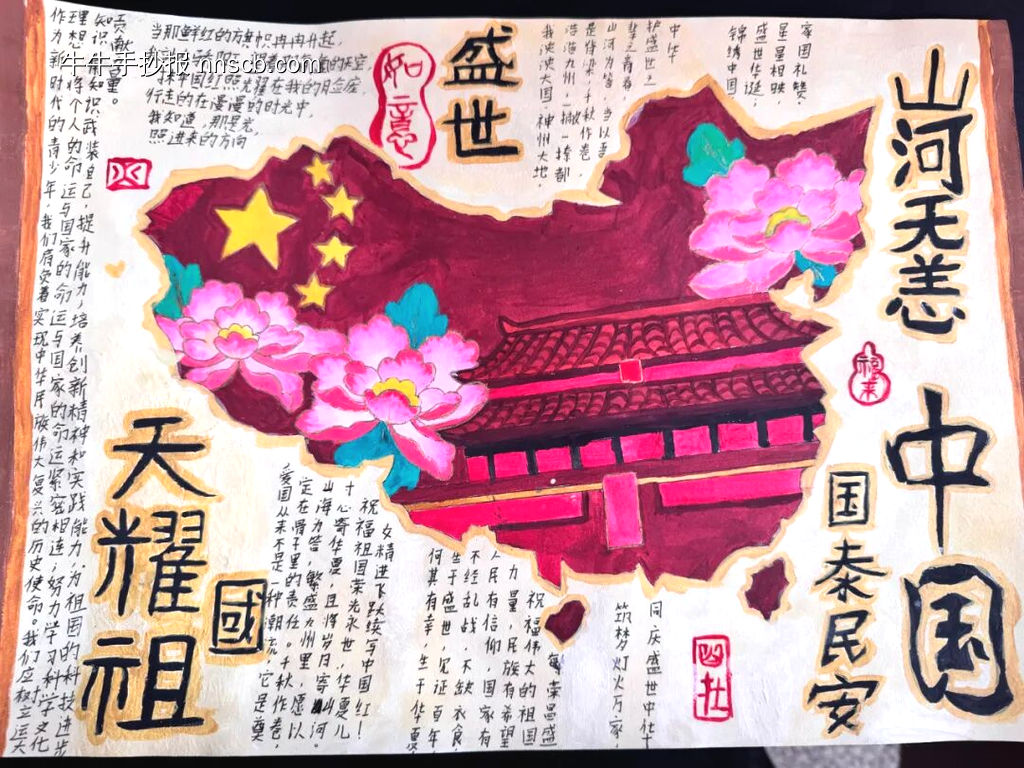 山河无恙
中国
国泰民安
盛世
天耀祖
國
如意
福来
家国礼赞,
星星相映,
盛世华诞,
锦绣中国。
中华
护盛世之
辈之青春,
山河为答,当以吾
是脊梁,千秋作卷,
浩浩九州,一撇一捺都
我泱泱大国,神州大地,
当那鲜红的旗帜冉冉升起,
行走的在漫漫的时光中,
我知道,那是光,
照进来的方向
贡献力量。
理想,将个人的命运与国家的命运与国家的命运紧密相连,努力学习科学文化
作为新时代的青少年,我们肩负着实现中华民族伟大复兴的历史使命。我们应树立远大
女精进飞跃续写中国红!
祝福祖国荣光永世,华夏儿
寸心寄华夏,且将岁月寄山河。
山海为答,繁盛九州里,愿以
定在骨子里的责任。千秋作卷,
爱国从来不是一种潮流,它是奠
同庆盛世中华
筑梦灯火万家,
祝福伟大的祖国
力量,民族有希望
人民有信仰,国家有
不经乱战,不缺衣食,
生于盛世,见证百年,
何其有幸,生于华夏
牛牛手抄报 nnscb.com